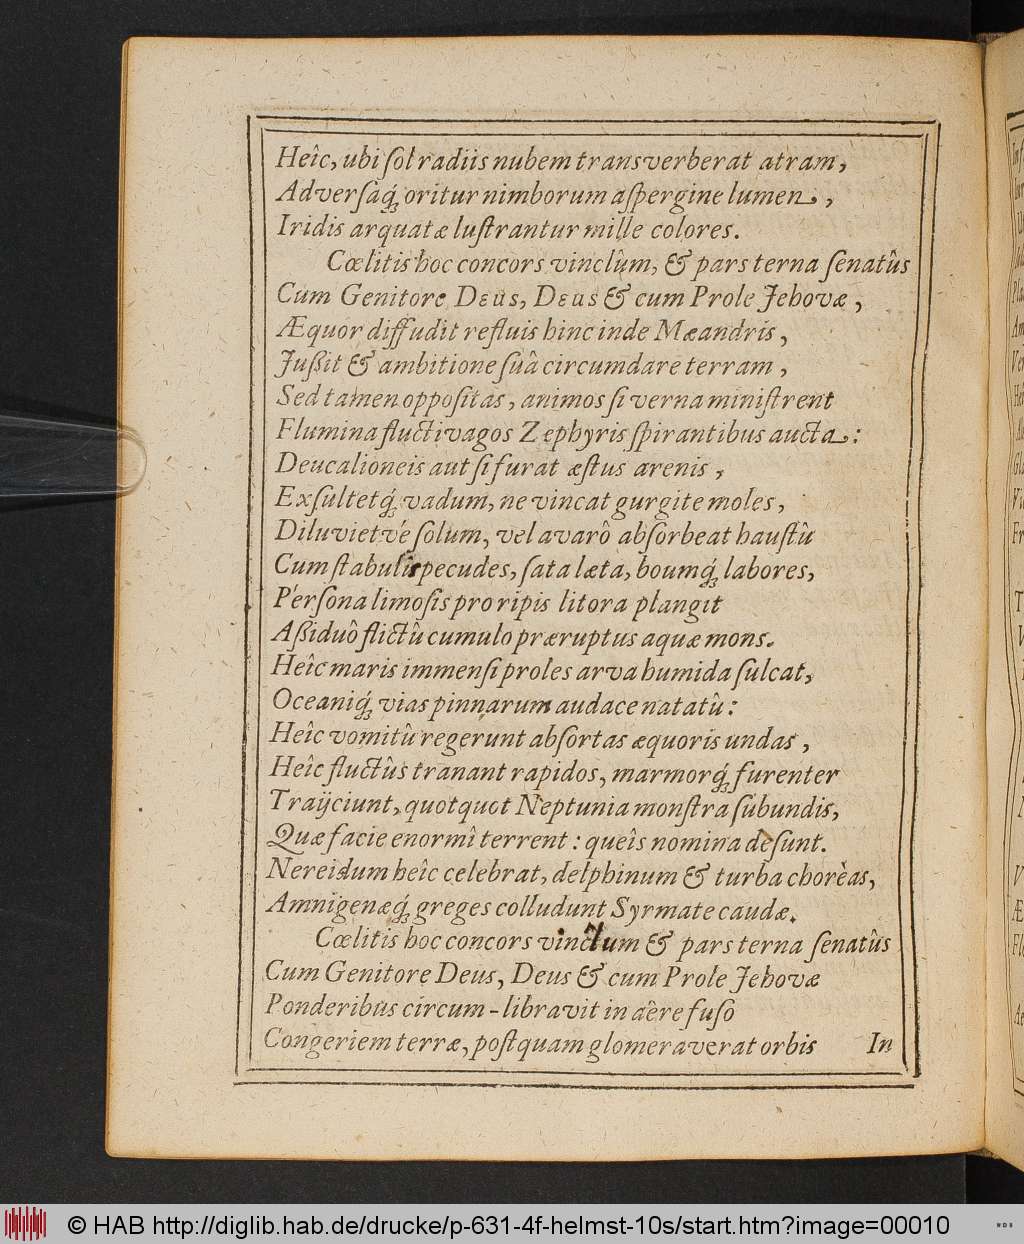 Heîc, ubi ſol radiis nubem transverberat atram,
Adverſaq́; oritur nimborum aſpergine lumen,
Iridis arquatæ luſtrantur mille colores.
Cœlitis hoc concors vinclum, & pars terna ſenatûs
Cum Genitore Deus, Deus & cum Prole Jehovæ,
Æquor diffudit refluis hinc inde Mæandris,
Jußit & ambitione ſuâ circumdare terram,
Sed tamen oppoſitas, animos ſi verna miniſtrent
Flumina fluctivagos Zephyris ſpirantibus aucta:
Deucalioneis aut ſi furat æſtus arenis,
Exſultetq́; vadum, ne vincat gurgite moles,
Diluvietvé ſolum, vel avarô abſorbeat hauſtû
Cum ſtabulis pecudes, ſata læta, boumq́; labores,
Perſona limoſis pro ripis litora plangit
Aßiduô flictû cumulo præruptus aquæ mons.
Heîc maris immenſi proles arva humida ſulcat,
Oceaniq́; vias pinnarum audace natatû:
Heîc vomitû regerunt abſortas æquoris undas,
Heîc fluctûs tranant rapidos, marmorq́; furenter
Traijciunt, quotquot Neptunia monſtra ſub undis,
Quæ facie enormî terrent: queîs nomina deſunt.
Nereidum heîc celebrat, delphinum & turba chorèas,
Amnigenæq́; greges colludunt Syrmate caudæ.
Cœlitis hoc concors vinclum & pars terna ſenatûs
Cum Genitore Deus, Deus & cum Prole Jehovæ
Ponderibus circum-libravit in aëre fuſo
Congeriem terræ, poſtquam glomeraverat orbis
In
© HAB http://diglib.hab.de/drucke/p-631-4f-helmst-10s/start.htm?image=00010